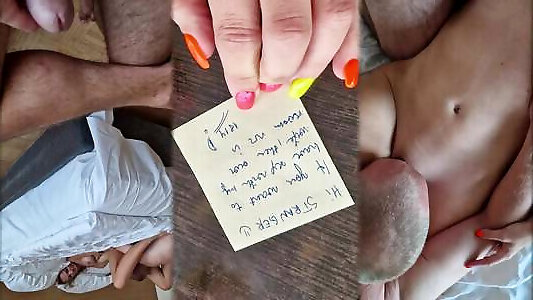 Hi STRANGER ☺
If you want to
have sex with my
wife, then our
room NR is